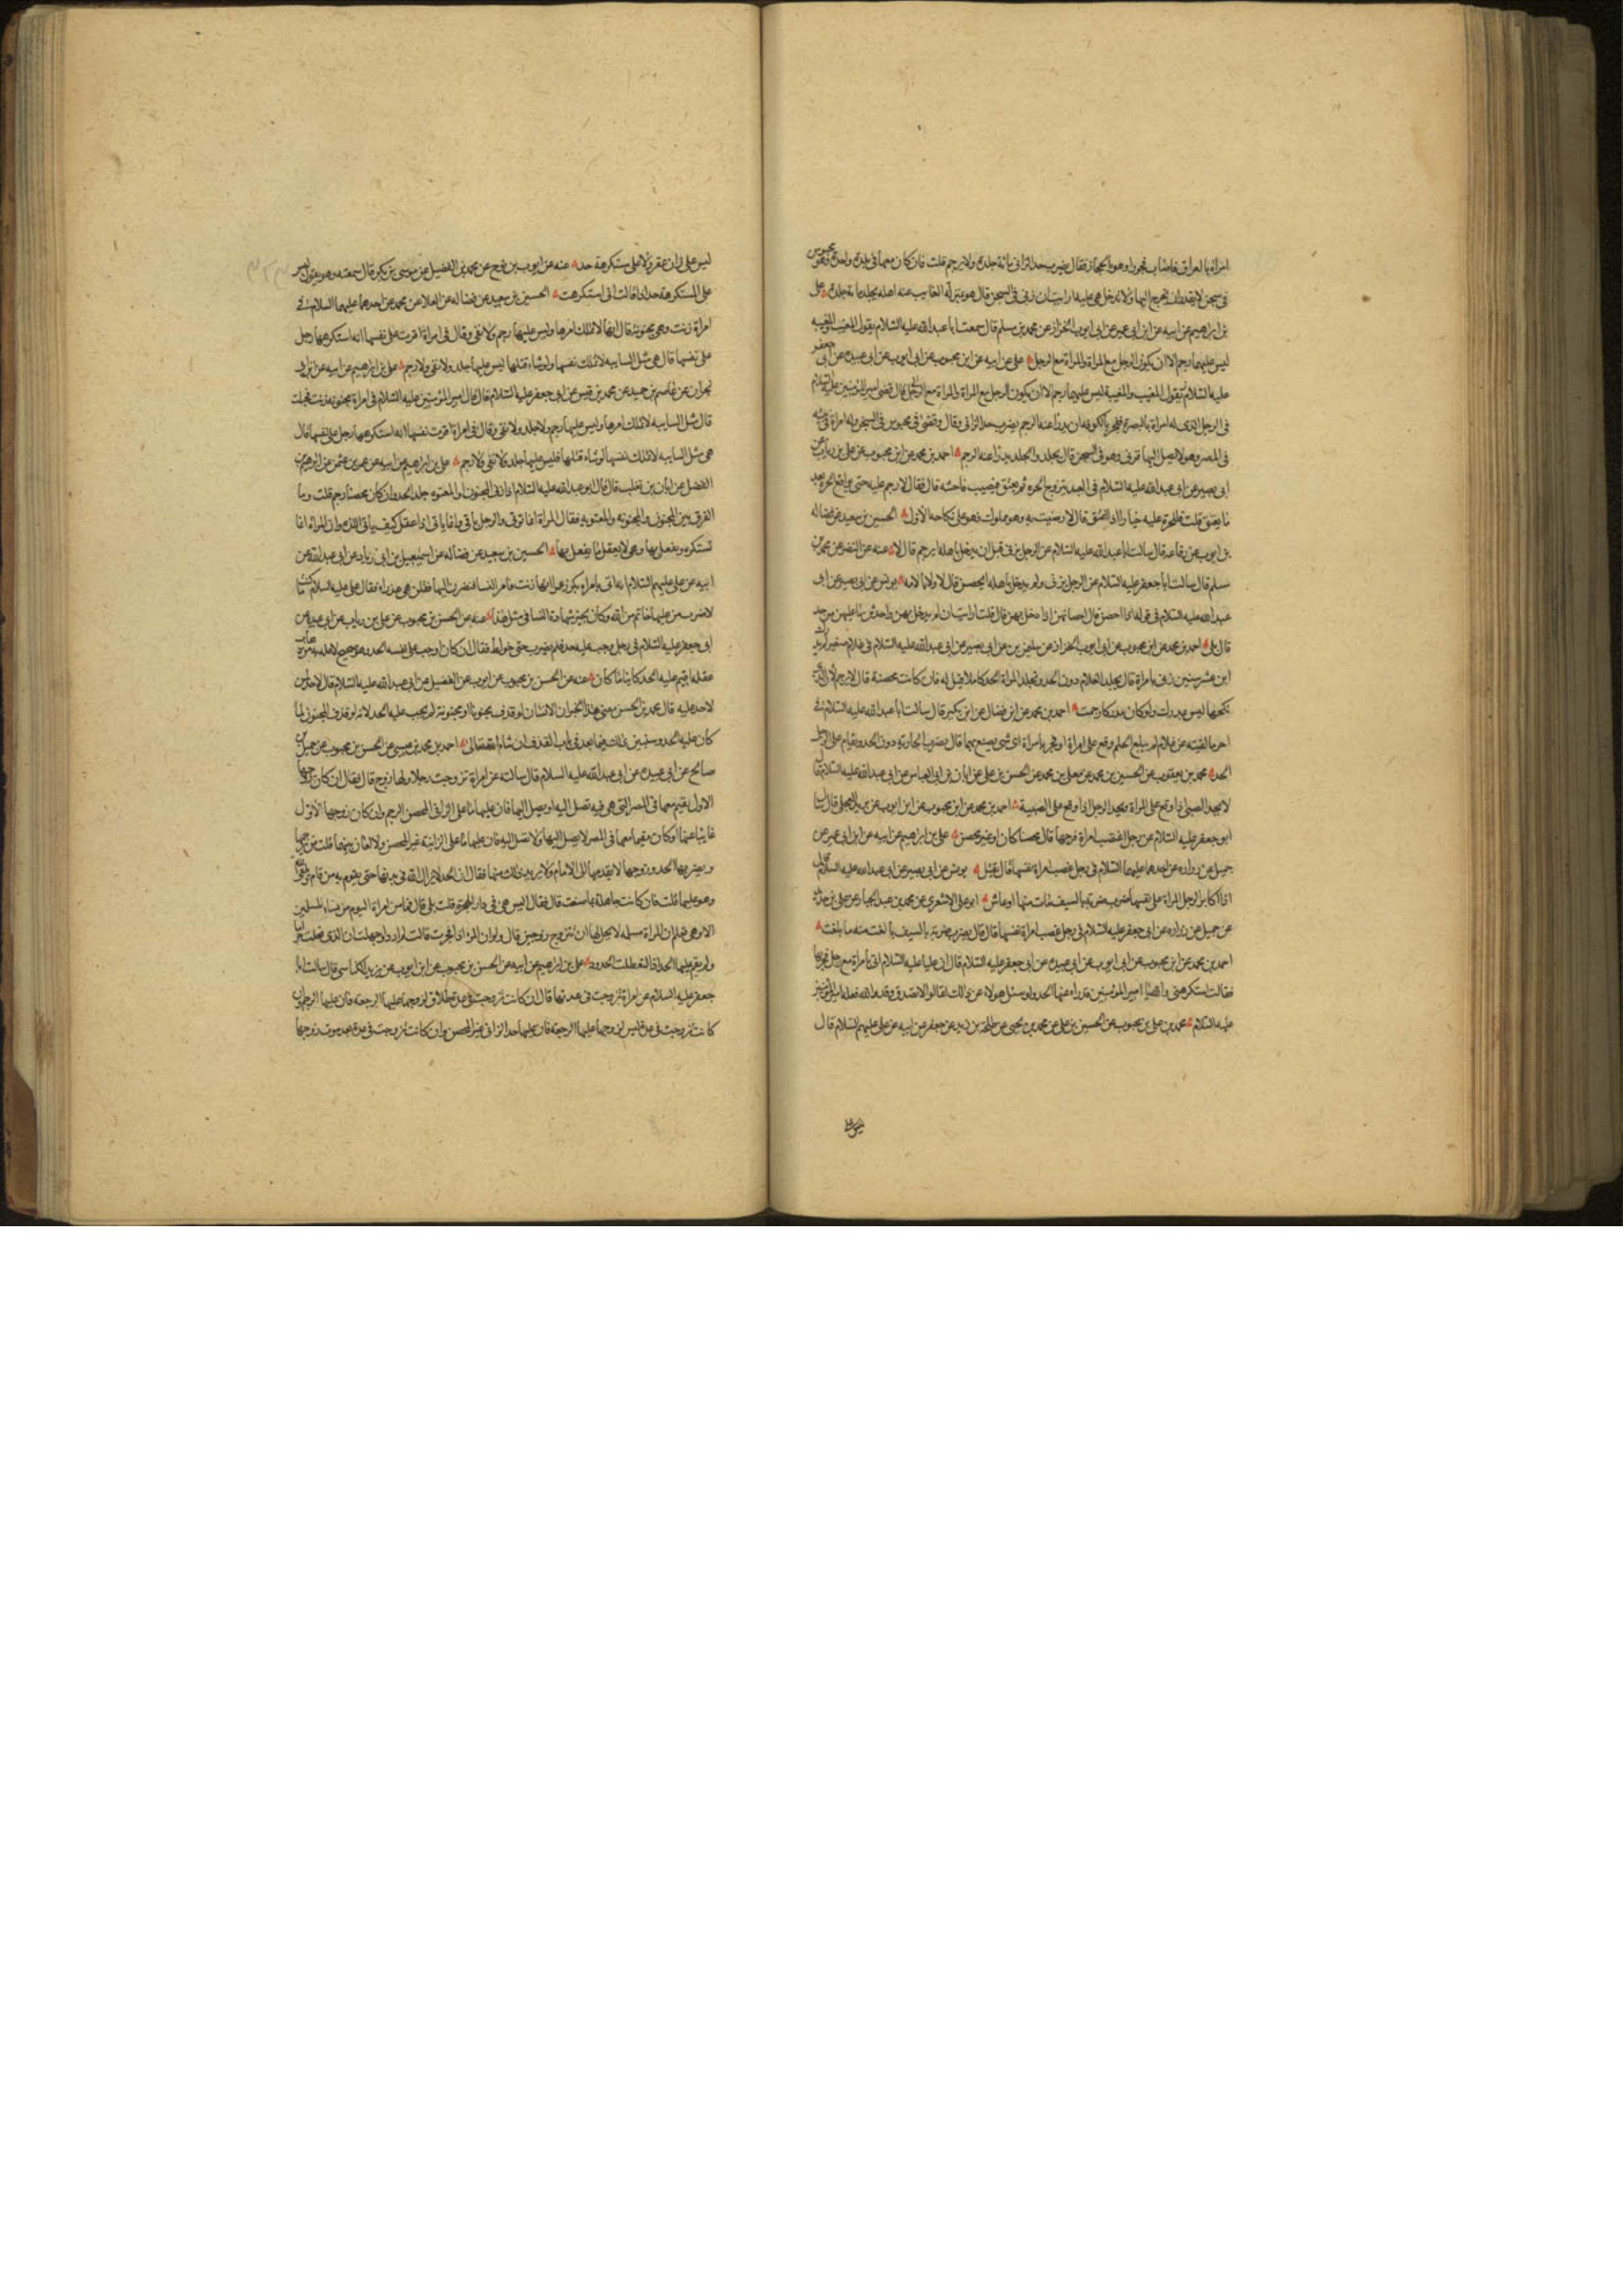 امراة بالعراق فاصاب فجورا وهو بالحجاز فقال يضرب حد الزاني مائة جلدة ولا يرجم قلت فان كان معها في بلدة واحدة وهو محبوس
في سجن لا يقدر ان يخرج اليها ولا تدخل هي عليه ارايت ان زنى في السجن قال هو بمنزلة الغايب عنه اهله يجلد مائة جلدة علي
بن ابرهيم عن ابيه عن ابن ابي عمير عن ابي ايوب الخزاز عن محمد بن مسلم قال سمعت ابا عبد الله عليه السلام يقول المغيب والمغيبة
ليس عليهما رجم الا ان يكون الرجل مع المراة والمراة مع الرجل علي عن ابيه عن ابن محبوب عن ابي ايوب عن ابي عبيدة عن ابي جعفر
عليه السلام
في الرجل الذي له امراة بالبصرة ففجر بالكوفة ان يدرا عنه الرجم يضرب حد الزاني وقال وقضى في محبوس في السجن وله امراة في بيته
في المصر وهو لا يصل اليها فزنى وهو في السجن قال يجلد الجلد ويدرا عنه الرجم احمد بن محمد عن ابن محبوب عن علي بن رئاب عن
ابي بصير عن ابي عبد الله عليه السلام في العبد يتزوج الحرة ثم يعتق فيصيب فاحشة قال فقال لا رجم عليه حتى يواقع الحرة بعد
ما يعتق قلت فللحرة عليه خيار اذا اعتق قال لا رضيت به وهو مملوك فهو على نكاحه الاول الحسين بن سعيد عن فضاله
بن ايوب عن رفاعه قال سالت ابا عبد الله عليه السلام عن الرجل يزني قبل ان يدخل باهله ايرجم قال لا عنه عن النضر عن محمد بن
مسلم قال سالت ابا جعفر عليه السلام عن الرجل يزني ولم يدخل باهله ايحصن قال لا ولا بالامة يونس عن ابي بصير عن ابي
عبد الله عليه السلام في قوله فاذا احصن قال احصانهن اذا دخل بهن قال قلت ارايت ان لم يدخل بهن واحدثن ما عليهن من حد
قال بلى احمد بن محمد عن ابن محبوب عن ابي ايوب الخزاز عن سليمن بن عن ابي بصير عن ابي عبد الله عليه السلام في غلام صغير لم يدرك
ابن عشر سنين زنى بامراة قال يجلد الغلام دون الحد وتجلد المراة الحد كاملا قيل له فان كانت محصنة قال لا ترجم لان الذي
نكحها ليس بمدرك ولو كان مدركا رجمت احمد بن محمد عن ابن فضال عن ابن بكير قال سالت ابا عبد الله عليه السلام في
اخر ما لقيته عن غلام لم يبلغ الحلم وقع على امراة او فجر بامراة اي شي يصنع بهما قال يضرب الجارية دون الحد ويقام على الرجل
الحد محمد بن يعقوب عن الحسين بن محمد عن معلى بن محمد عن الحسن بن علي عن ابان عن ابي العباس عن ابي عبد الله عليه السلام قال
لا يحد الصبي اذا وقع على المراة ويحد الرجل اذا وقع على الصبية احمد بن محمد عن ابن محبوب عن ابي ايوب عن بريد العجلي قال سئل
ابو جعفر عليه السلام عن رجل اغتصب امراة فرجها قال يقتل محصنا كان او غير محصن علي بن ابرهيم عن ابيه عن ابن ابي عمير عن
جميل عن زراره عن احدهما عليهما السلام في رجل غصب امراة نفسها قال يقتل يونس عن ابي بصير عن ابي عبد الله عليه السلام قال
اذا كابر الرجل المراة على نفسها ضرب ضربة بالسيف مات منها او عاش ابو علي الاشعري عن محمد بن عبد الجبار عن علي بن حديد
عن جميل عن زراره عن ابي جعفر عليه السلام في رجل غصب امراة نفسها قال قال يضرب ضربة بالسيف بالغت منه ما بلغت
احمد بن محمد عن ابن محبوب عن ابي ايوب عن ابي عبيده عن ابي جعفر عليه السلام قال ان عليا عليه السلام اتي بامراة مع رجل فجر بها
فقالت استكرهني والله يا امير المؤمنين فدراء عنها الحد ولو سئل هولاء عن ذلك لقالوا لا تصدق وقد والله فعله امير المؤمنين
عليه السلام محمد بن علي بن محبوب عن الحسين بن علي عن محمد بن يحيى عن طلحة بن زيد عن جعفر عن ابيه عن علي عليهم السلام قال
ليس على
ليس على زان عقر ولا على مستكرهة حد عنه عن ايوب بن نوح عن محمد بن الفضيل عن موسى بن بكر قال سمعته وهو يقول ليس
على المستكرهة حد اذا قالت انى استكرهت الحسين بن سعيد عن فضاله عن العلا عن محمد عن احدهما عليهما السلام في
امراة زنت وهي مجنونة قال انها لا تملك امرها وليس عليها رجم ولا نفي وقال في امراة اقرت على نفسها انه استكرهها رجل
على نفسها قال هي مثل السايبه لا تملك نفسها ولو شاء قتلها ليس عليها جلد ولا نفي ولا رجم علي بن ابرهيم عن ابيه عن ابن ابي
نجران عن عاصم بن حميد عن محمد بن قيس عن ابي جعفر عليه السلام قال قال امير المؤمنين عليه السلام في امراة مجنونه زنت فحبلت
قال مثل السايبه لا تملك امرها وليس عليها رجم ولا جلد ولا نفي وقال في امراة اقرت نفسها انه استكرهها رجل على نفسها قال
هي مثل السايبه لا تملك نفسها لو شاء قتلها فليس عليها جلد ولا نفي ولا رجم علي بن ابراهيم عن ابيه عن عمرو بن عثمن عن ابرهيم بن
الفضل عن ابان بن تغلب قال قال ابو عبد الله عليه السلام اذا زنى المجنون او المعتوه جلد الحد وان كان محصنا رجم قلت وما
الفرق بين المجنون والمجنونه والمعتوهه فقال المراة انما توتى والرجل ياتي وانما ياتي اذا عقل كيف ياتي اللذه وان المراة انما
تستكره ويفعل بها وهي لا يعقل ما يفعل بها الحسين بن سعيد عن فضاله عن اسمعيل بن ابي زياد عن ابي عبد الله عن
ابيه عن علي عليهم السلام انه اتى بامراة بكر زعموا انها زنت فامر النساء فنظرن اليها فقلن هي عذراء فقال علي عليه السلام ما كنت
لاضرب من عليها خاتم من الله وكان يجيز شهادة النسا في مثل هذا عنه عن الحسن بن محبوب عن علي بن رياب عن ابي عبيدة عن
ابي جعفر عليه السلام في رجل وجب عليه حد فلم يضرب حتى خولط فقال ان كان اوجب على نفسه الحد وهو صحيح لا علة به من ذهاب
عقله اقيم عليه الحد كائنا ما كان عنه عن الحسن بن محبوب عن ايوب عن الفضيل عن ابي عبد الله عليه السلام قال لا حد لمن
لا حد عليه قال محمد بن الحسن معنى هذا الخبر ان الانسان لو قذف مجنونا او مجنونة لم يجب عليه الحد لانه لو قذف المجنون لما
كان عليه الحد وسنبين ذلك فيما بعد في باب القذف ان شاء الله تعالى احمد بن محمد بن عيسى عن الحسن بن محبوب عن جميل بن
صالح عن ابي عبيده عن ابي عبد الله عليه السلام قال سالته عن امراة تزوجت رجلا ولها زوج قال فقال ان كان زوجها
الاول يقيم معها في المصر التي هي فيه تصل اليه او يصل اليها فان عليها ما على الزاني المحصن الرجم وان كان زوجها الاول
غايبا عنها او كان مقيما معها في المصر لا يصل اليها ولا تصل اليه فان عليها ما على الزانية غير المحصن ولا لعان بينهما قلت من يرجمها
ويضربها الحد وزوجها لا يقدمها الى الامام ولا يريد ذلك منها فقال ان الحد لا يزال لله في بدنها حتى يقوم به من قام
وهو عليها قلت فان كانت جاهلة بما صنعت قال فقال اليس هي في دار الهجرة قلت بلى قال فما من امراة اليوم من نساء المسلمين
الا وهي تعلم ان المراة مسلمه لا يحل لها ان تتزوج زوجين قال ولو ان المراة اذا فجرت قالت لم ادر او جهلت ان الذي فعلت حرام
ولم يقم عليها الحد اذا لتعطلت الحدود علي بن ابرهيم عن ابيه عن الحسن بن محبوب عن ابي ايوب عن يزيد الكناسي قال سالت ابا
جعفر عليه السلام عن امراة تزوجت في عدتها قال ان كانت تزوجت في عدة طلاق لزوجها عليها الرجعة فان عليها الرجم وان
كانت تزوجت في عدة ليس لزوجها عليها الرجعة فان عليها حد الزاني غير المحصن وان كانت تزوجت في عدة بعد موت زوجها